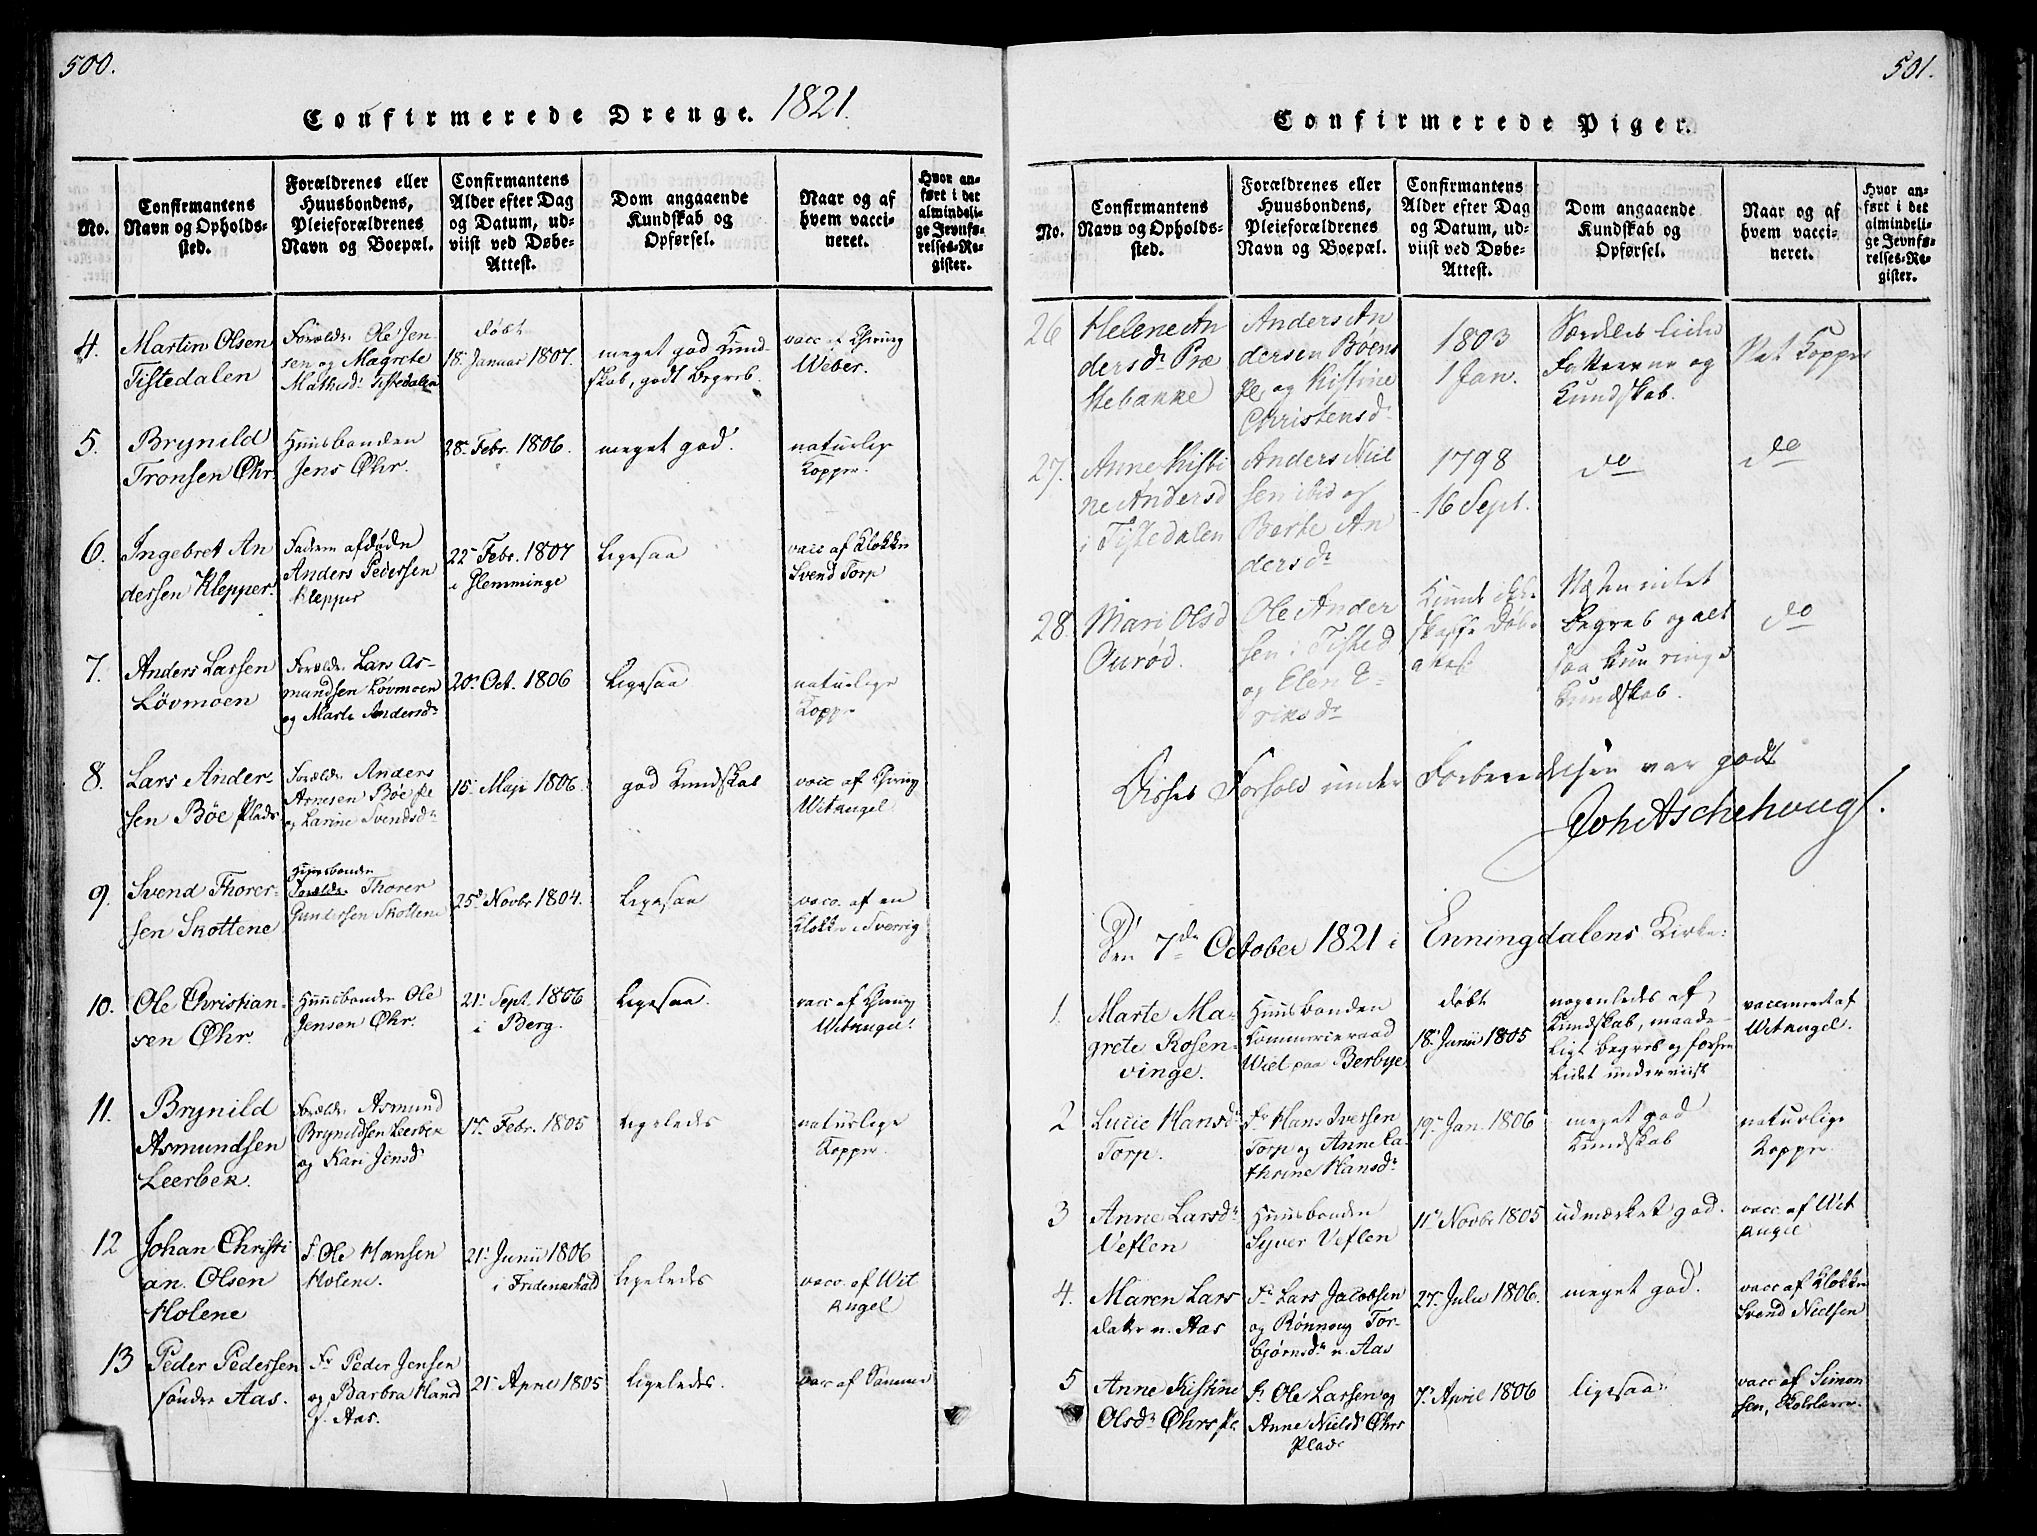 500.
Confirmerede Drenge. 1821.
No.
Confirmantens Navn og Opholds-sted.
Forældrenes eller Huusbondens, Pleieforældrenes Navn og Boepæl.
Confirmantens Alder efter Dag og Datum, ud-viist ved Døbe-Attest.
Dom angaaende Kundskab og Opførsel.
Naar og af hvem vacci-neret.
Hvor an-ført i det almindeli-ge Jevnfø-relses-Re-gister.
4.
Martin Olsen
Tistedalen
Forældr. Ole Jen-
sen og Magrete
Mathisdr Tistedalen
døbt
18. Januar 1807.
meget god Kund-
skab, godt Begreb.
vacc. af Chirurg
Weber.
5.
Brynild
Tronsen Øhr.
Huusbonden
Jens Øhr.
28. Febr. 1806.
meget god.
naturlige
Kopper
6.
Ingebret An
dersen Klepper.
Faderen afdøde
Anders Pedersen
Klepper
22. Febr. 1807
i Glemminge
Ligesaa
vacc af Klokker
Svend Torp
7.
Anders Larsen
Løvmoen
Forældr. Lars As-
mundsen Løvmoen
og Marte Andersdr
20. Oct. 1806
Ligesaa
naturlige
Kopper
8.
Lars Ander-
sen Bøe Plads
Forældr. Anders
Arnesen Bøe Pl
og Larine Svendsdr
15. Maji 1806.
god Kundskab
vacc af Chirurg
Witangel.
9.
Svend Thorer-
sen Skottene
Huusbonden
Forældr. Thorer
Gundersen Skottene
25. Novbr 1804.
Ligesaa
vacc. af en
Klokker i Sverrig
10.
Ole Christian-
sen Øhr.
Huusbonden Ole
Jensen Øhr.
21. Sept. 1806
i Berg.
Ligesaa.
vacc af Chirurg
Witangel.
11.
Brynild
Asmundsen
Leerbek.
Forældr. Asmund
Brynildsen Leerbek
og Kari Jensdr
17. Febr. 1805
Ligeledes
naturlige
Kopper.
12
Johan Christi
an. Olsen
Holene
F. Ole Hansen
Holene.
21. Junii 1806
i Fridericshald
Ligeledes
vacc. af Wit
angel
13
Peder Pedersen
søndre Aas.
Fr Peder Jensen
og Barbra Hansd
s. Aas.
21. April 1805
Ligeledes.
vacc af Samme
501.
Confirmerede Piger.
No.
Confirmantens Navn og Opholds-sted.
Forældrenes eller Huusbondens, Pleieforældrenes Navn og Boepæl.
Confirmantens Alder efter Dag og Datum, ud-viist ved Døbe-Attest.
Dom angaaende Kundskab og Opførsel.
Naar og af hvem vacci-neret.
Hvor an-ført i det almindeli-ge Jevnfø-relses-Re-gister.
26
Helene An
dersdr Præ
stebakke
Anders An
dersen Bøens
Pl. og Kistine
Christensdr
1803
1 Jan.
Særdeles liden
Fatteevne og
Kundskab.
Nat Kopper
27.
Anne Kisti
ne Andersd
i Tistedalen
Anders Niel
sen ibid og
Berte An
dersdr
1798
16 Sept.
do
do
28
Mari Olsd
Ourød.
Ole Ander
sen i Tisted
og Elen E-
riksdr
Kunde ikke
skaffe Døbe
attest
Næsten intet
Begreb og alt
saa kun ringe
Kundskab.
do
Disses Forhold under Forberedelsen var godt
Joh Aschehoug.
Den 7de October 1821 i Enningdalens Kirke:
1.
Marte Ma-
grete Rosen-
vinge.
Huusbonden
Commerceraad
Wiel paa Berbye
døbt
18. Junii 1805
nogenledes af
Kundskab, maade-
ligt begreb og forhen
Lidet underviist
vaccineret af
Witangel.
2
Lucie Hansdr
Torp.
Fr Hans Iversen
Torp og Anne Ca-
thrine Hansdr
19. Jan. 1806
meget god
Kundskab
naturlige
Kopper.
3
Anne Larsdr
Veflen
Huusbonden
Syver Veflen
11. Novbr 1805
udmærket god.
vacc. af Wit
angel
4.
Maren Lars
datter n. Aas
Fr Lars Jacobsen
og Rønnoug Tor-
bjørnsdr n. Aas
27. Julii 1806.
meget god.
vacc af Klokker
Svend Nielsen
5
Anne Kistine
Olsdr Øhrs Pl.
Fr Ole Larsen og
Anne Nielsd Øhrs
Plads
7. April 1806
ligesaa
vacc af Simon
sen,